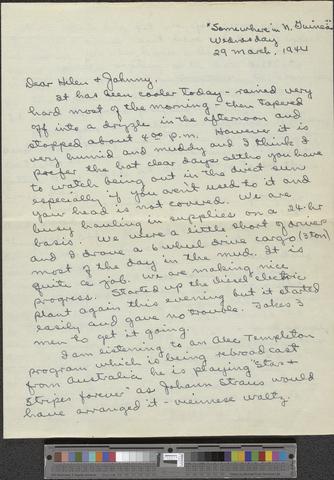 "Somewhere in N. Guinea"
Wednesday
29 March, 1944
Dear Helen & Johnny,
It has been cooler today - rained very
hard most of the morning - then tapered
off into a drizzle in the afternoon and
stopped about 4:00 p.m. However it is
very humid and muddy and I think I
prefer the hot clear days altho you have
to watch being out in the direct sun
especially if you aren't used to it and
your head is not covered. We are
busy hauling in supplies on a 24 hr
basis. We were a little short of drivers
and I drove a 6 wheel drive cargo (3 ton)
most of the day in the mud. It is
quite a job. We are making nice
progress. Started up the diesel electric
plant again this evening but it started
easily and gave no trouble. Takes 3
men to get it going.
I am listening to an Alec Templeton
program which is being rebroadcast
from Australia he is playing "Stars &
Stripes forever" as Johann Straus would
have arranged it - viennese waltz.